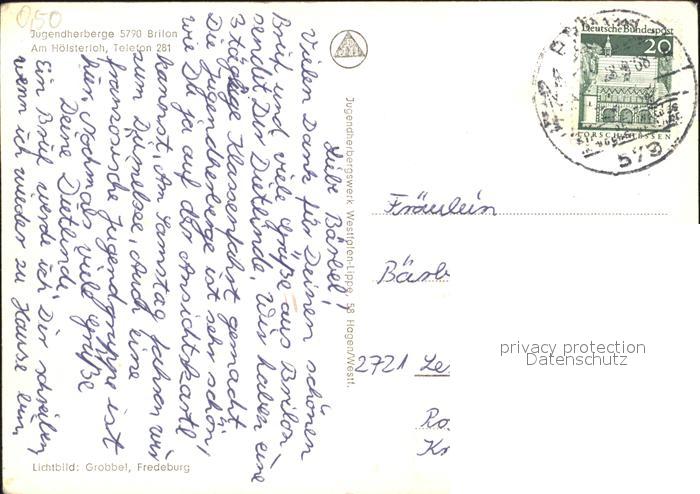 0,50
Jugendherberge 5790 Brilon
Am Hölsterloh, Telefon 281
Liebe Bärbel!
Vielen Dank für Deinen schönen
Brief und viele Grüße aus Brilon
sendet Dir Dietlinde. Wir haben eine
3 tägige Klassenfahrt gemacht.
Die Jugendherberge ist sehr schön,
wie Du ja auf der Ansichtskarte
kannst. Am Samstag fahren wir
zum Diemelsee. Auch eine
französische Jugendgruppe ist
hier. Nochmals viele Grüße
Deine Dietlinde.
Ein Brief werde ich Dir schreiben,
wenn ich wieder zu Hause bin.
Lichtbild: Grobbel, Fredeburg
Jugendherbergswerk Westfalen-Lippe, 58 Hagen/Westf.
Deutsche Bundespost
20
LORSCH/HESSEN
579
Fräulein
Bärb
2721 Le
Ro
Kr
privacy protection
Datenschutz